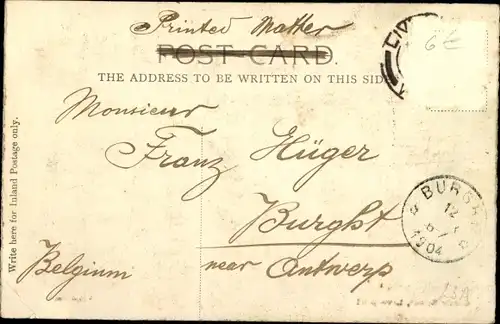 Printed Matter
POST CARD.
THE ADDRESS TO BE WRITTEN ON THIS SIDE
Write here for Inland Postage only.
Monsieur
Franz Hüger
Burght
near Antwerp
Belgium
BURGHT
12
1904
6€